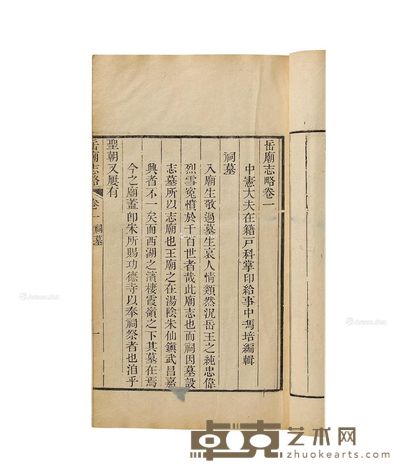 岳廟志略卷一
中憲大夫在籍戸科掌印給事中馮培編輯
祠墓
入廟生敬過墓生哀人情類然況岳王之純忠偉
烈雪冤憤於千百世者哉此廟志也而祠因墓設
志墓所以志廟也王廟之在湯陰朱仙鎮武昌嘉
興者不一矣而西湖之濱棲霞嶺之下其墓在焉
今之廟蓋卽宋所賜功德寺以奉祠祭者也洎乎
聖朝又屢有
岳廟志略 卷一 祠墓 一
卓克艺术网
www.zhuokearts.com